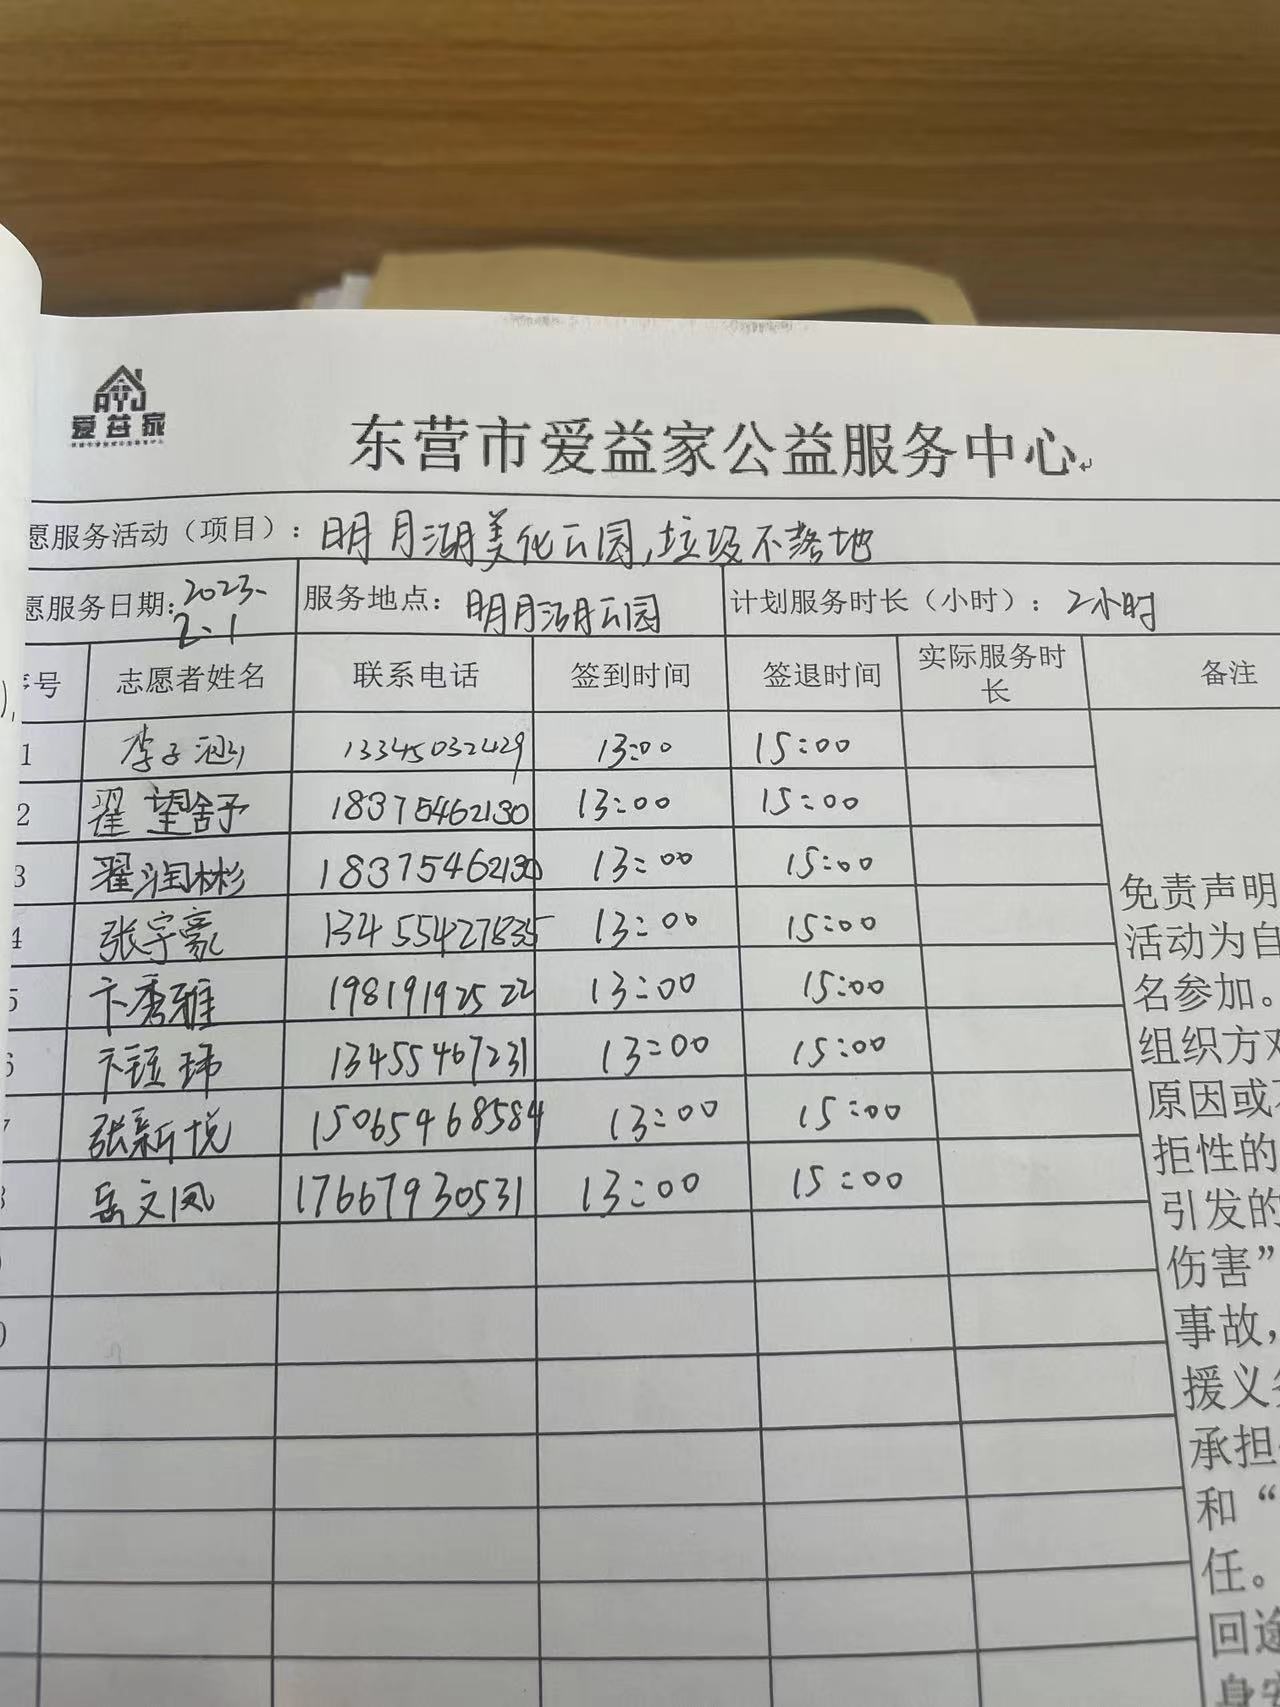 AYJ
爱益家
东营市爱益家公益服务中心
愿服务活动（项目）：明月湖美化公园,垃圾不落地
愿服务日期:2023.2.1 服务地点：明月湖公园 计划服务时长（小时）：2小时
号 志愿者姓名 联系电话 签到时间 签退时间 实际服务时长 备注
1 李子涵 13345032429 13:00 15:00
2 翟望舒 18375462130 13:00 15:00
3 翟润彬 18375462130 13:00 15:00
4 张宇豪 13455427835 13:00 15:00
5 卞秀雅 19819192522 13:00 15:00
卞 玮 13455467231 13:00 15:00
张新悦 15065468584 13:00 15:00
岳文凤 17667930531 13:00 15:00
免责声明
活动为自
名参加。
组织方对
原因或不
拒性的
引发的
伤害”
事故，
援义务
承担
和“
任。
回途
身安